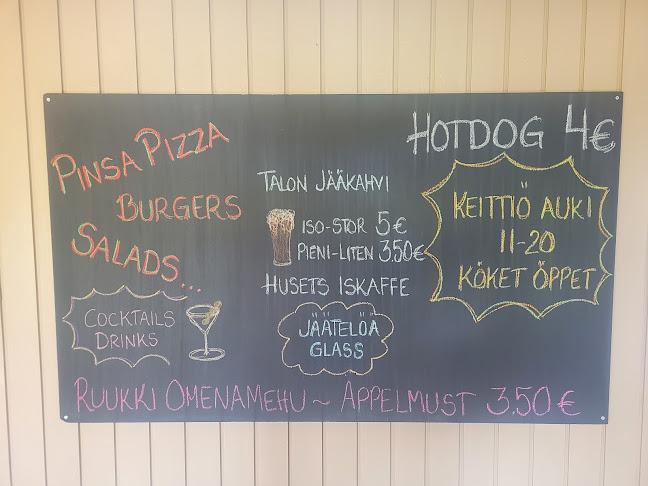 PINSA PIZZA
BURGERS
SALADS...
COCKTAILS
DRINKS
TALON JÄÄKAHVI
ISO-STOR 5€
PIENI-LITEN 3.50€
HUSETS ISKAFFE
JÄÄTELÖÄ
GLASS
HOTDOG 4€
KEITTIÖ AUKI
11-20
KÖKET ÖPPET
RUUKKI OMENAMEHU ~ APPELMUST 3.50 €